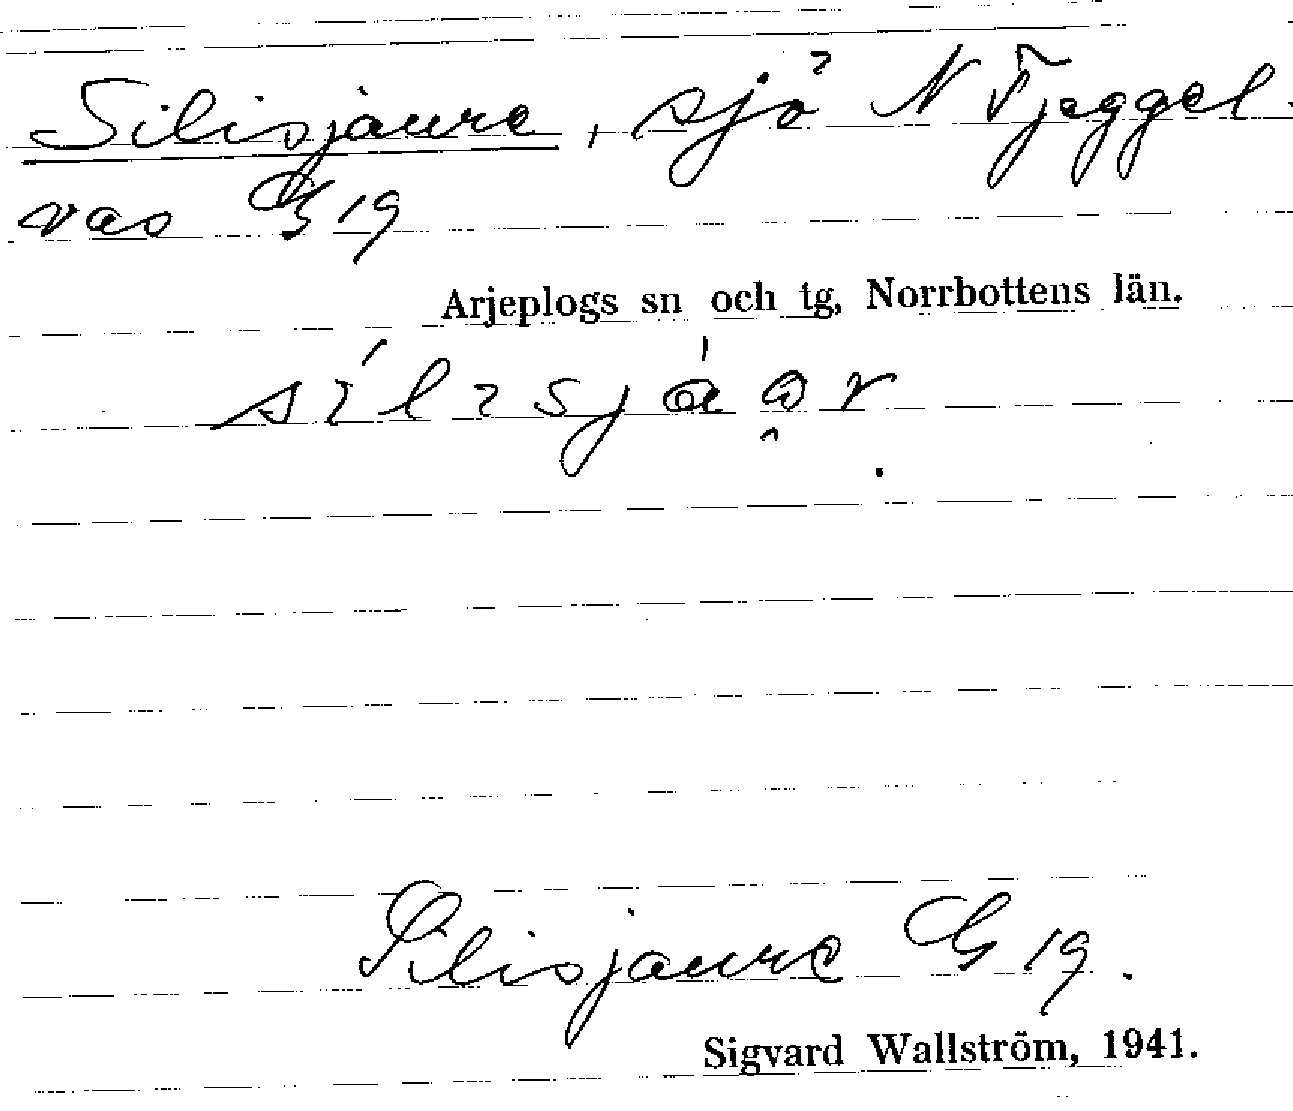 Silisjaure, sjö N Tjeggel-
vas G 19
Arjeplogs sn och tg, Norrbottens län.
Silisjaure G 19.
Sigvard Wallström, 1941.